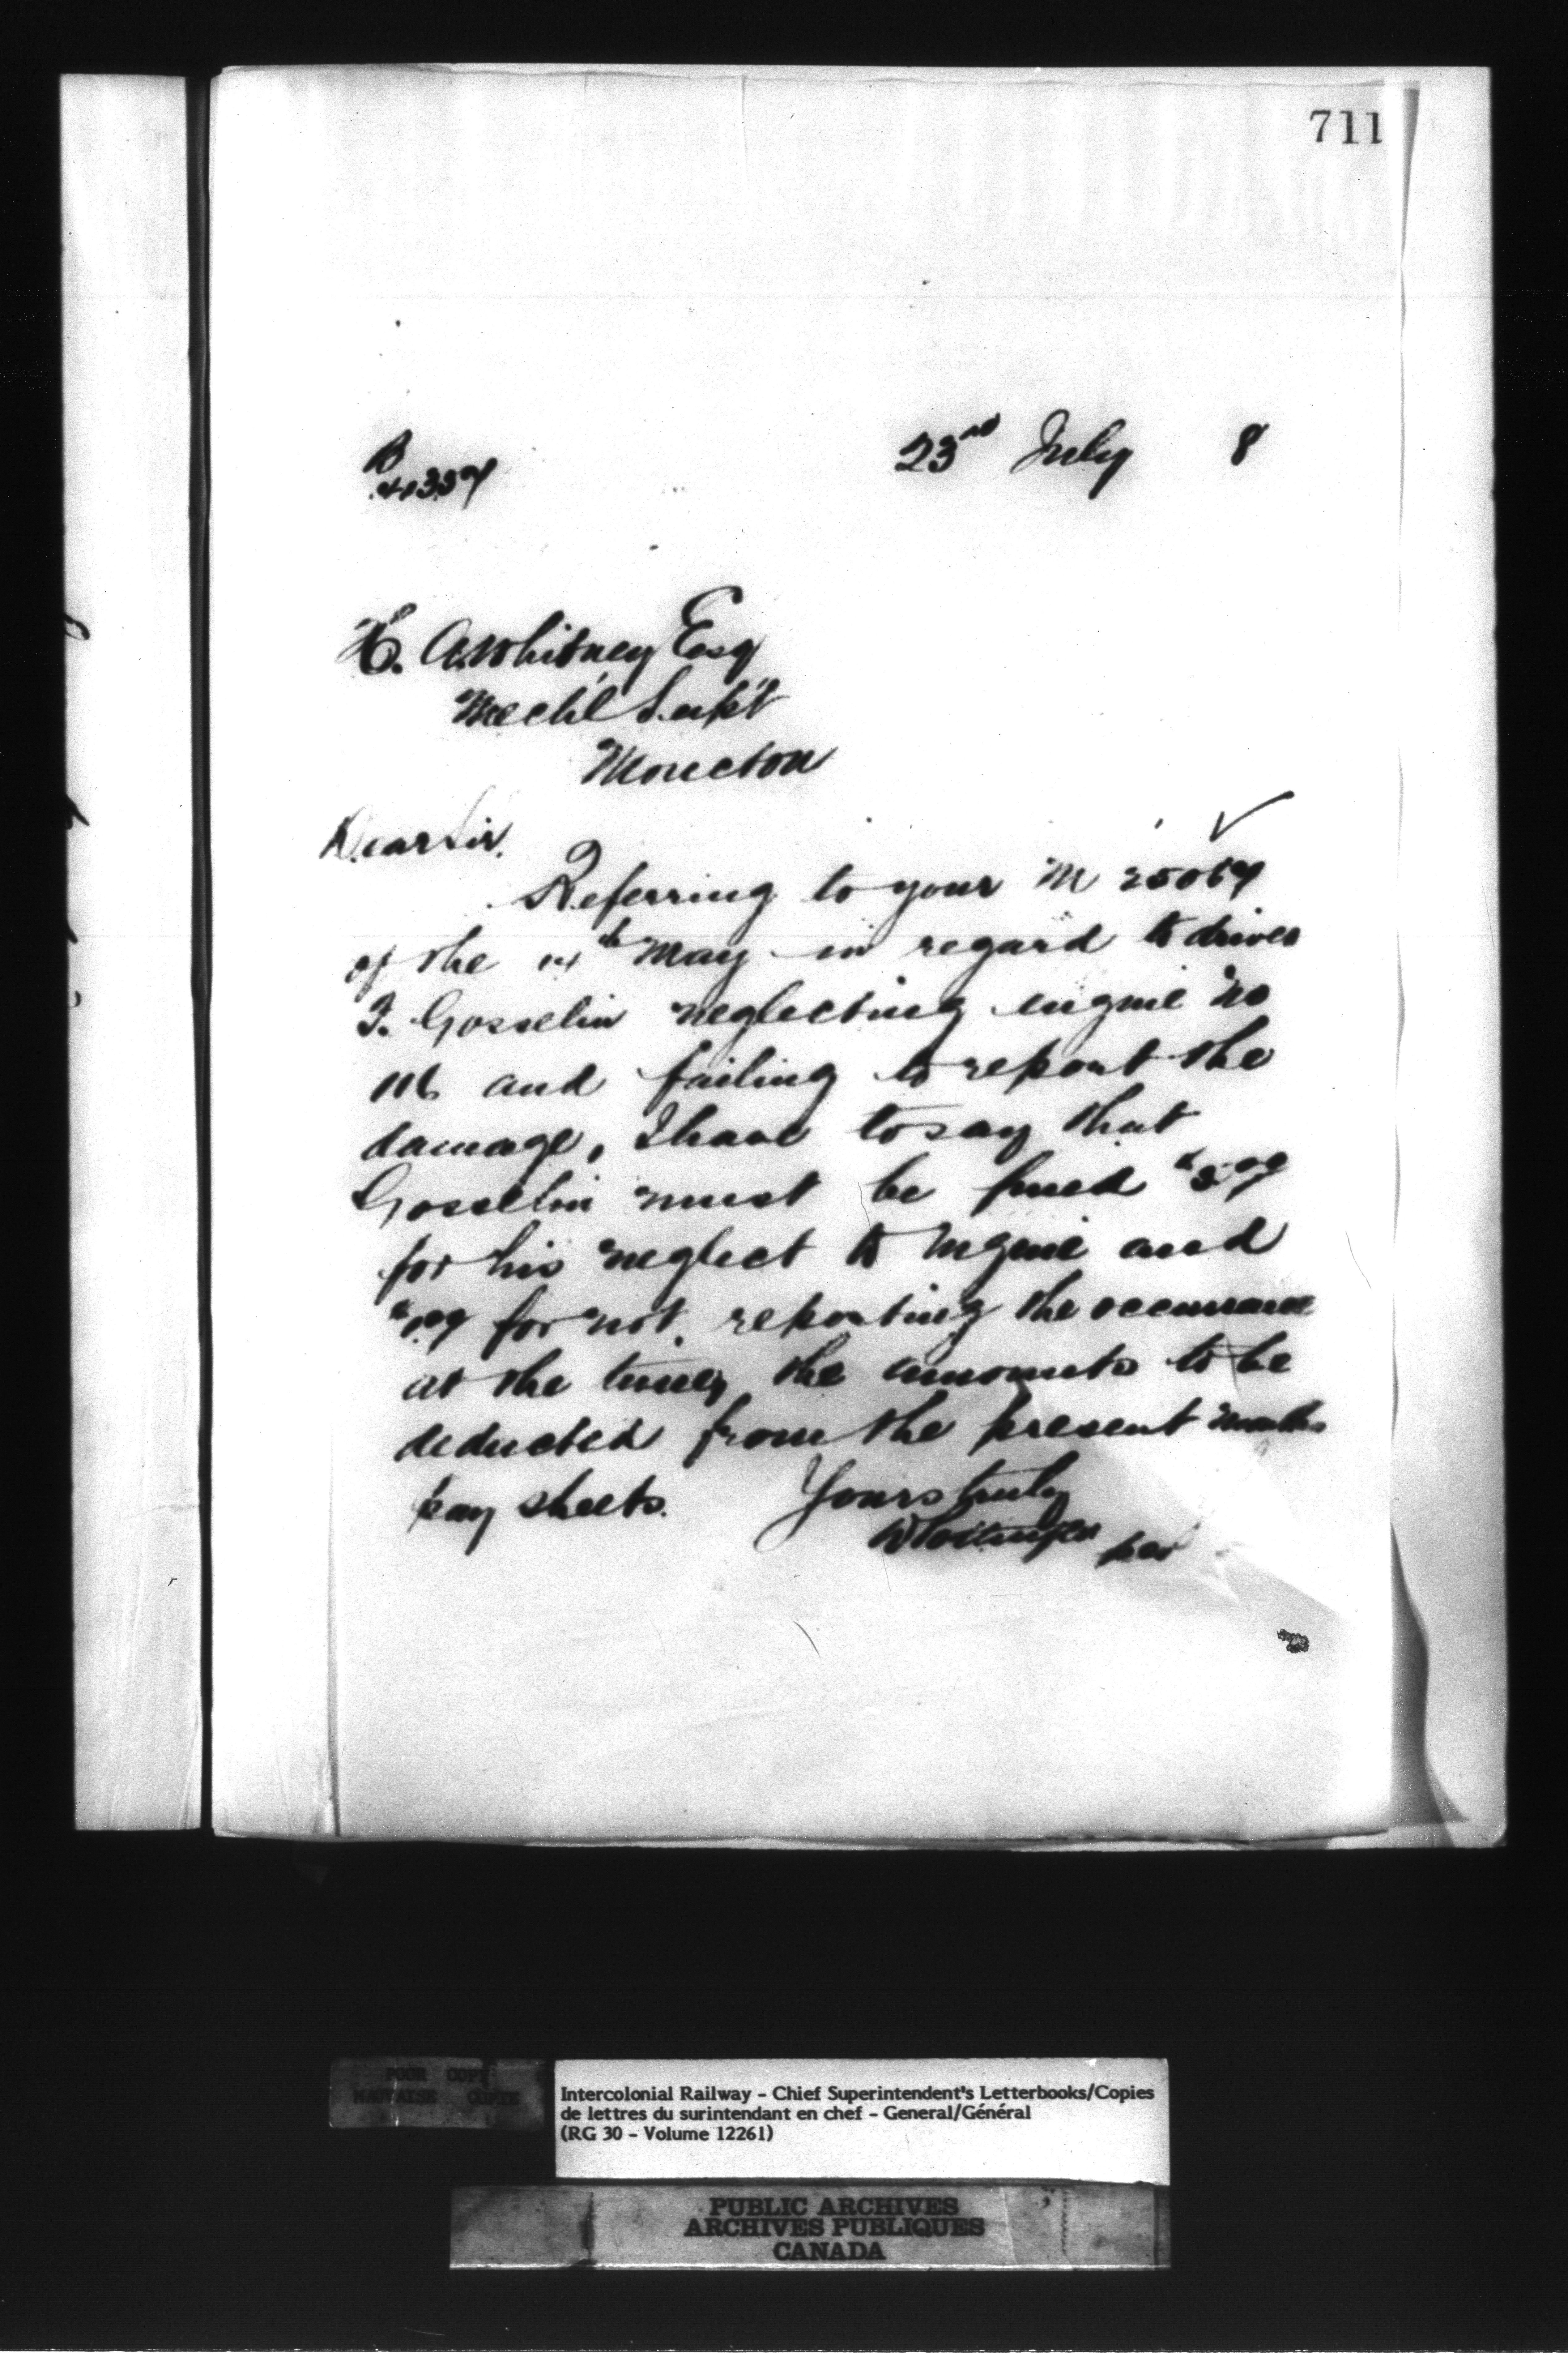 711
23rd July 8
B
41337
H. A. Whitney Esq
Mech'l Sup't
Moncton
Dear Sir.
Referring to your M 25067
of the 14th May in regard to driver
J. Gosselin neglecting engine No
116 and failing to report the
damage, I have to say that
Gosselin must be fined $5.00
for his neglect to engine and
$1.00 for not reporting the occurrance
at the time, the amounts to be
deducted from the present months
pay sheets. Yours truly
D Pottinger per
POOR COPY
MAUVAISE COPIE
Intercolonial Railway - Chief Superintendent's Letterbooks/Copies
de lettres du surintendant en chef - General/Général
(RG 30 - Volume 12261)
PUBLIC ARCHIVES
ARCHIVES PUBLIQUES
CANADA